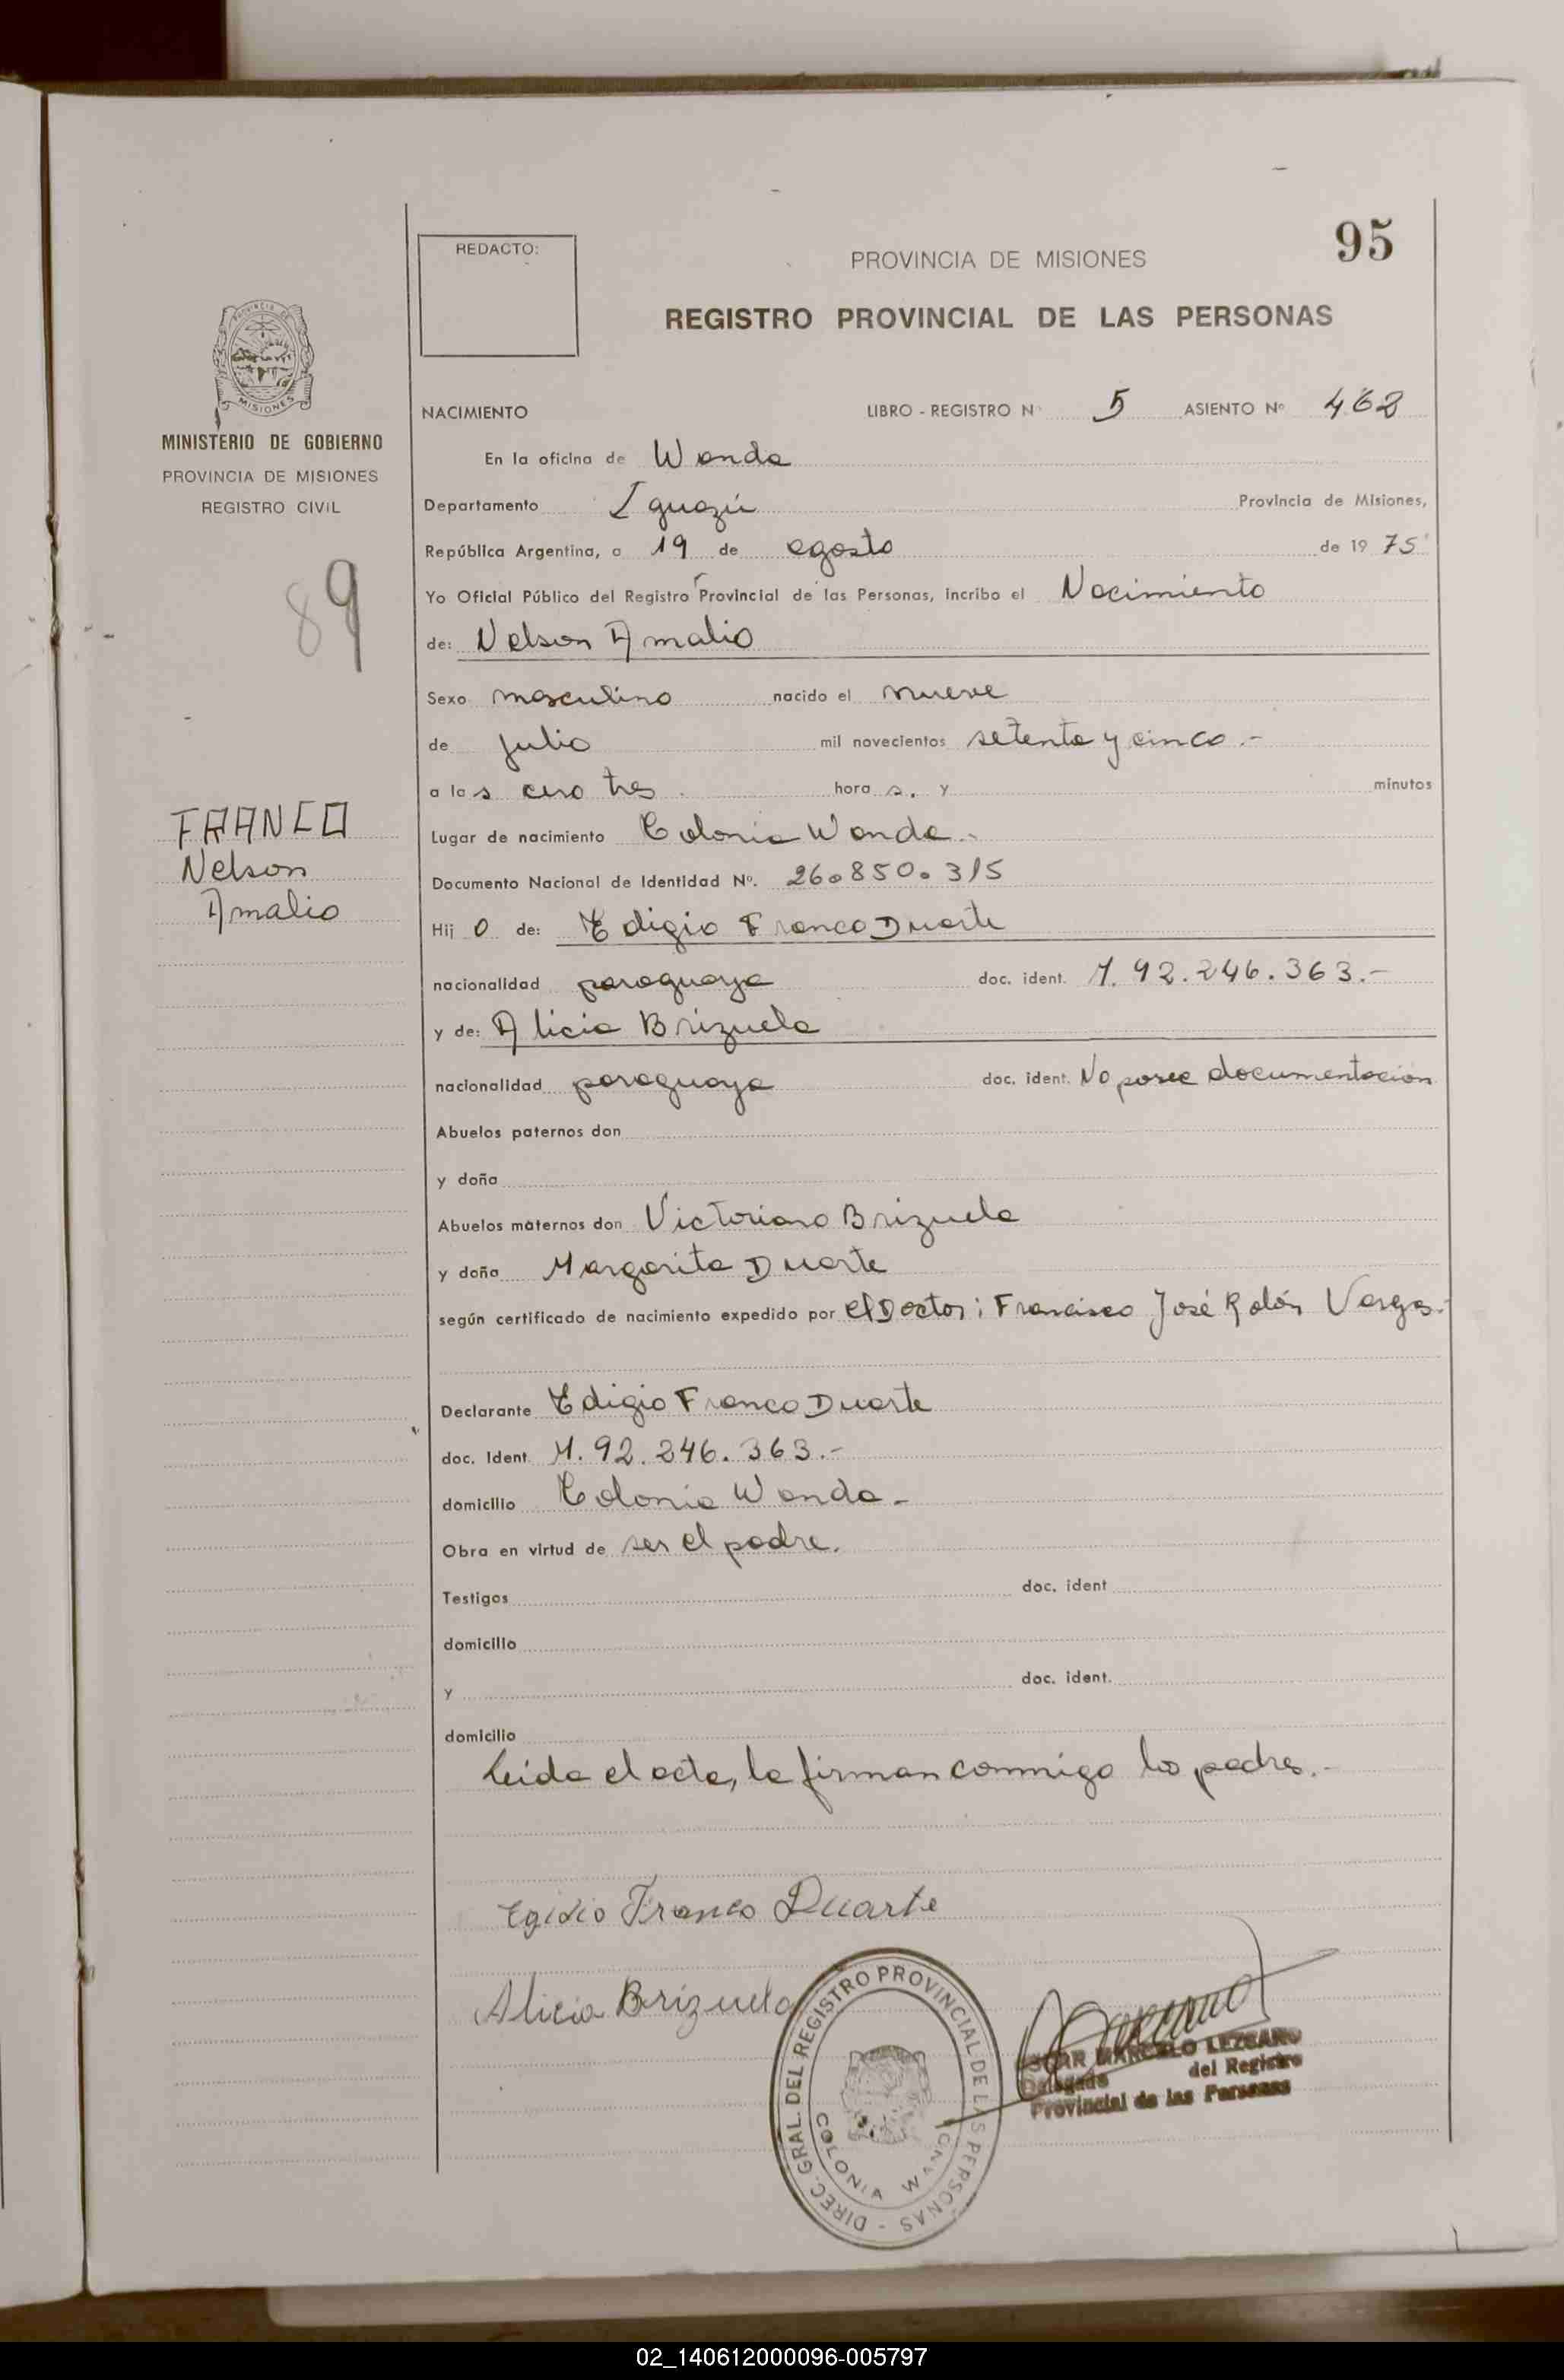 95
REDACTO:
PROVINCIA DE MISIONES
REGISTRO PROVINCIAL DE LAS PERSONAS
PROVINCIA DE
MISIONES
MINISTERIO DE GOBIERNO
PROVINCIA DE MISIONES
REGISTRO CIVIL
89
FRANCO
Nelson
Amalio
NACIMIENTO LIBRO - REGISTRO Nº 5 ASIENTO Nº 462
En la oficina de Wanda
Departamento Iguazú Provincia de Misiones,
República Argentina, a 19 de agosto de 1975
Yo Oficial Público del Registro Provincial de las Personas, incribo el Nacimiento
de: Nelson Amalio
Sexo masculino nacido el nueve
de julio mil novecientos setenta y cinco.-
a las cero tres hora s. y minutos
Lugar de nacimiento Colonia Wanda.-
Documento Nacional de Identidad Nº. 26.850.315
Hij o de: Edigio Franco Duarte
nacionalidad paraguaya doc. ident. M. 92.246.363.-
y de: Alicia Brizuela
nacionalidad paraguaya doc. ident. No posee documentación
Abuelos paternos don
y doña
Abuelos maternos don Victoriano Brizuela
y doña Margarita Duarte
según certificado de nacimiento expedido por el Doctor: Francisco José Rolón Vargas.-
Declarante Edigio Franco Duarte
doc. Ident. M. 92.246.363.-
domicilio Colonia Wanda.-
Obra en virtud de ser el padre.
Testigos doc. ident
domicilio
y doc. ident.
domicilio
Leida el acta, la firman conmigo los padres.-
Egidio Franco Duarte
Alicia Brizuela
DIREC. GRAL. DEL REGISTRO PROVINCIAL DE LAS PERSONAS -
COLONIA WANDA
OSCAR MARCELO LEZCANO
Delegado del Registro
Provincial de las Personas
02_140612000096-005797